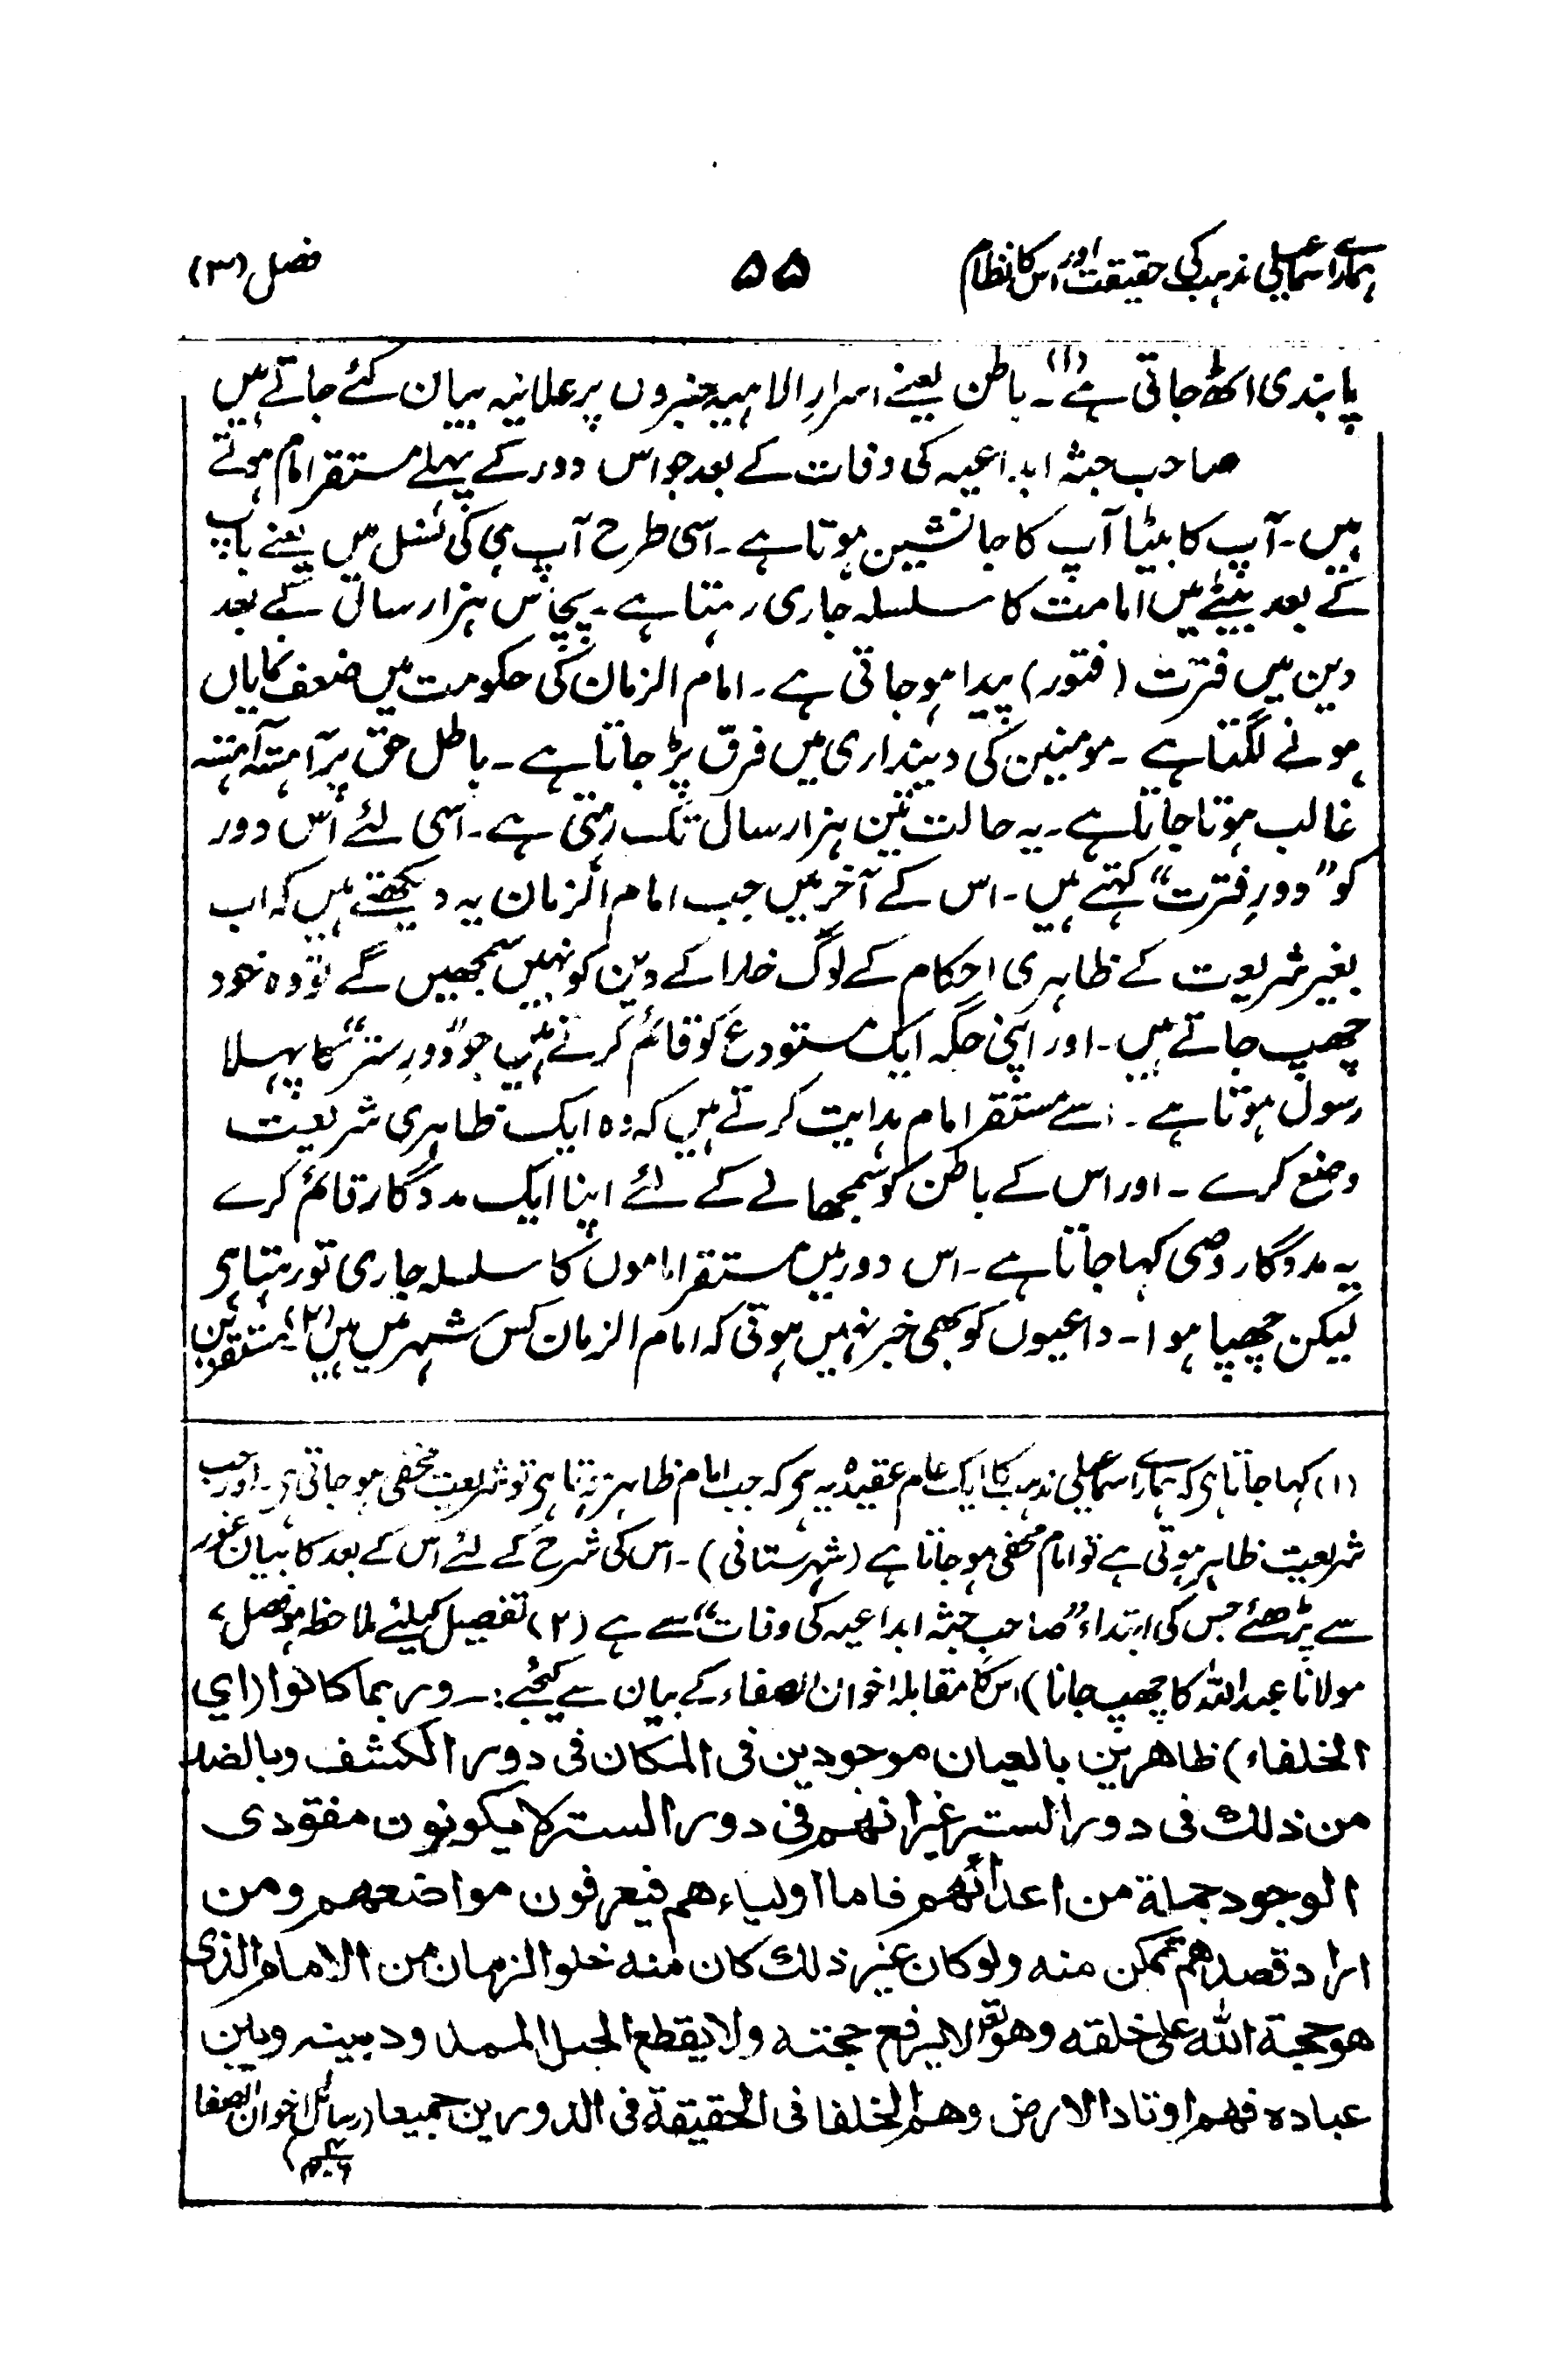 ہمارے اسماعیلی مذہب کی حقیقت اور اس کا نظام ۵۵ فصل (۳)
پابندی اٹھ جاتی ہے (۱)۔ باطن یعنے اسرارِ الاہیہ منبروں پر علانیہ بیان کئے جاتے ہیں
صاحب جثہ ابداعیہ کی وفات کے بعد جو اس دور کے پہلے مستقر امام ہوتے
ہیں۔ آپ کا بیٹا آپ کا جانشین ہوتا ہے۔ اسی طرح آپ ہی کی نسل میں یعنے باپ
کے بعد بیٹے میں امامت کا سلسلہ جاری رہتا ہے۔ پچاس ہزار سال کے بعد
دین میں فترت (فتور) پیدا ہو جاتی ہے۔ امام الزمان کی حکومت میں ضعف نمایاں
ہونے لگتا ہے۔ مومنین کی دینداری میں فرق پڑ جاتا ہے۔ باطل حق پر آہستہ آہستہ
غالب ہوتا جاتا ہے۔ یہ حالت تین ہزار سال تک رہتی ہے۔ اسی لئے اس دور
کو ”دورِ فترت“ کہتے ہیں۔ اس کے آخر میں جب امام الزمان یہ دیکھتے ہیں کہ اب
بغیر شریعت کے ظاہری احکام کے لوگ خدا کے دین کو نہیں سمجھیں گے تو وہ خود
چھپ جاتے ہیں۔ اور اپنی جگہ ایک مستودع کو قائم کرتے ہیں جو ”دورِ ستر“ کا پہلا
رسول ہوتا ہے۔ اسے مستقر امام ہدایت کرتے ہیں کہ وہ ایک ظاہری شریعت
وضع کرے۔ اور اس کے باطن کو سمجھانے کے لئے اپنا ایک مددگار قائم کرے
یہ مددگار وصی کہا جاتا ہے۔ اس دور میں مستقر اماموں کا سلسلہ جاری تو رہتا ہی
لیکن چھپا ہوا۔ داعیوں کو بھی خبر نہیں ہوتی کہ امام الزمان کس شہر میں ہیں (۲)۔ مستقرین
(۱) کہا جاتا ہی کہ ہمارے اسماعیلی مذہب کا ایک عام عقیدہ یہ ہی کہ جب امام ظاہر ہوتا ہی تو شریعت مخفی ہو جاتی ہی۔ اور جب
شریعت ظاہر ہوتی ہے تو امام مخفی ہو جاتا ہے (شہرستانی)۔ اس کی شرح کے لئے اس کے بعد کا بیان غور
سے پڑھئے جس کی ابتداء ”صاحب جثہ ابداعیہ کی وفات“ سے ہے (۲) تفصیل کیلئے ملاحظہ ہو فصل
مولانا عبد اللہ کا چھپ جانا) اس کا مقابلہ اخوان الصفاء کے بیان سے کیجئے:۔ وربما کانوا (ای
الخلفاء) ظاهرین بالعیان موجودین فی المکان فی دور الکشف وبالضد
من ذلك فی دور الستر غیر انهم فی دور الستر لا یکونون مفقودی
الوجود جملة من اعدائهم فاما اولیاءهم فیعرفون مواضعهم ومن
اراد قصدهم تمکن منه ولو کان غیر ذلك کان منه خلو الزمان من الامام الذی
هو حجة الله علی خلقه وهو تعالی لا یرفع حجته ولا یقطع الحبل الممدود بینه وبین
عباده فهم اوتاد الارض وهم الخلفا فی الحقیقة فی الدورین جمیعا (رسائل اخوان الصفا